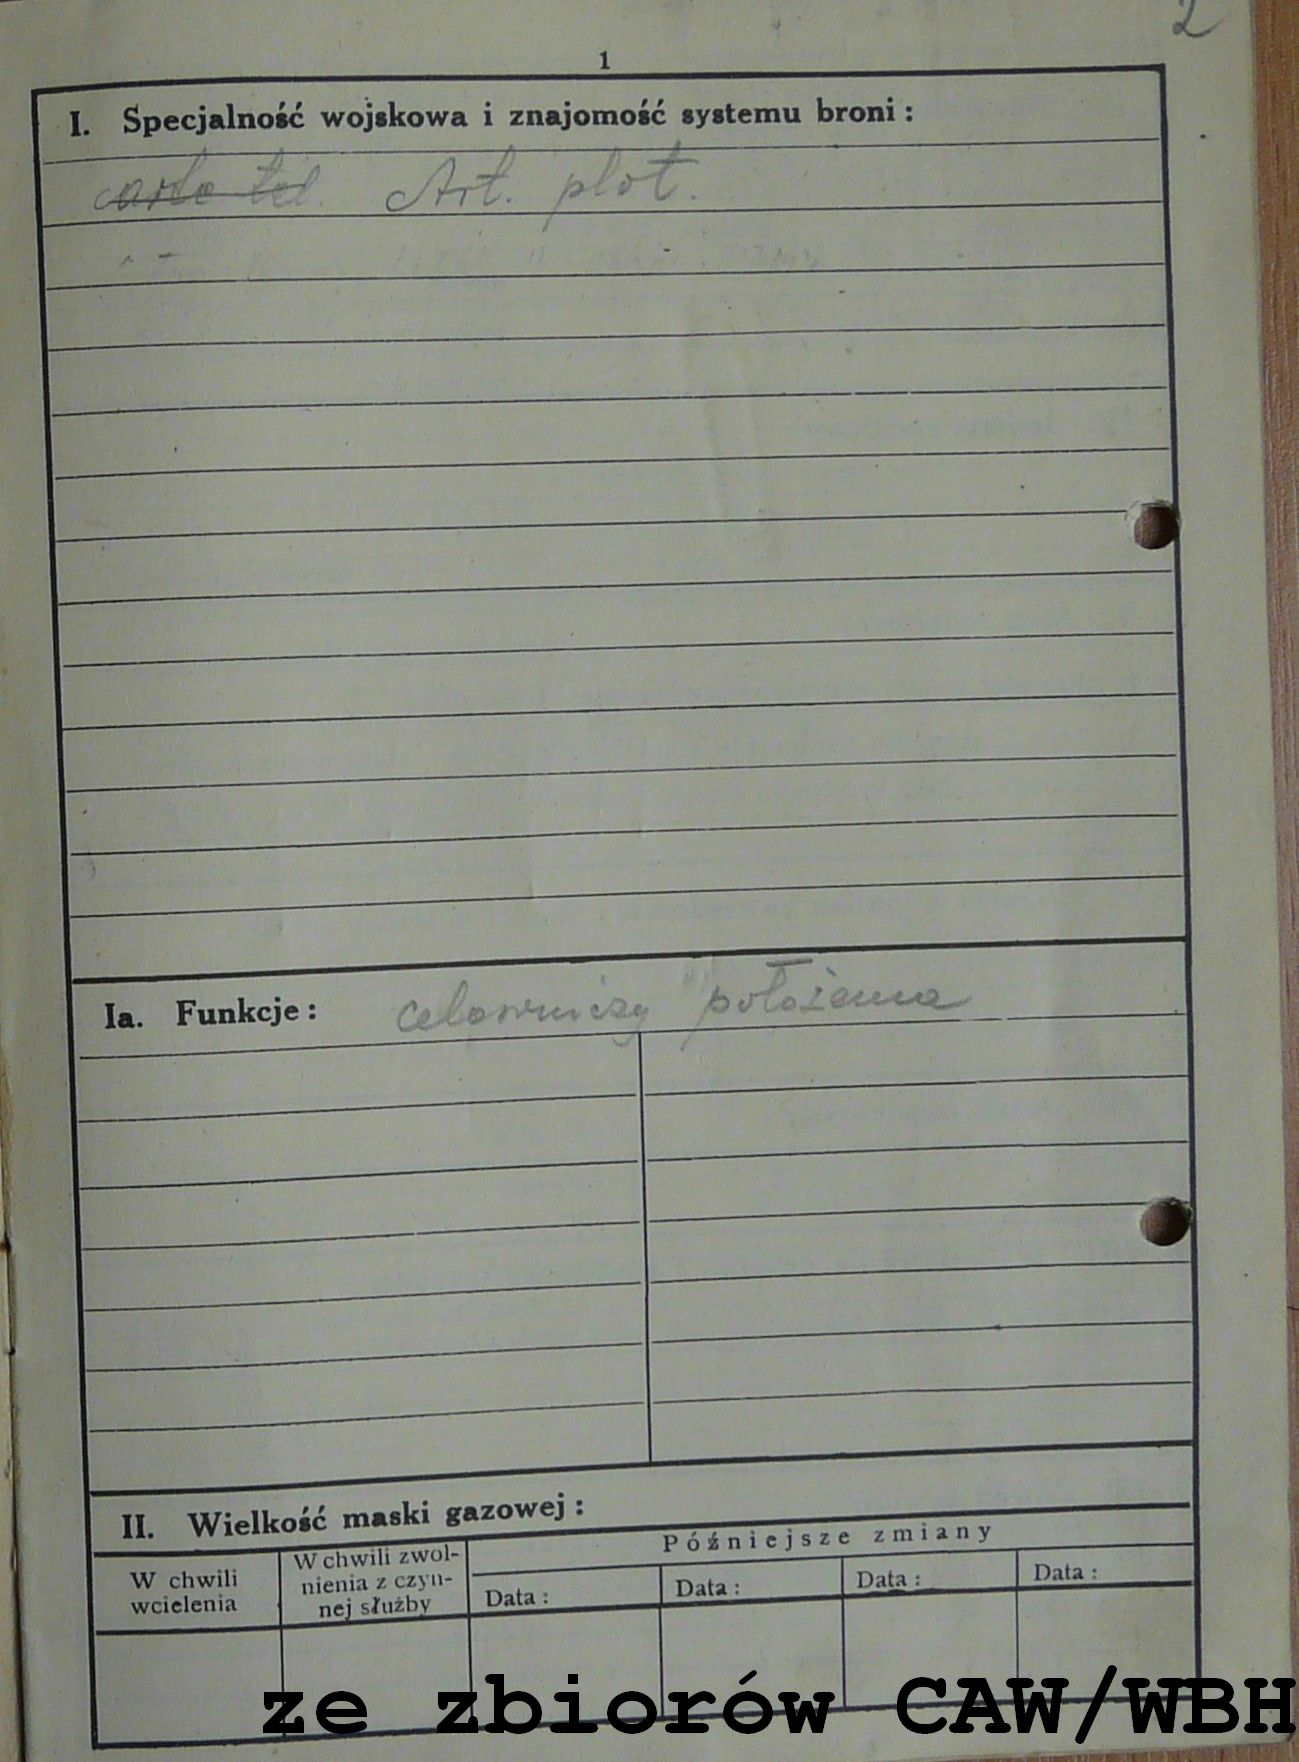 2
1
I. Specjalność wojskowa i znajomość systemu broni:
Art. plot.
Ia. Funkcje: celowniczy położenia
II. Wielkość maski gazowej:
W chwili wcielenia
W chwili zwol-
nienia z czyn-
nej służby
Późniejsze zmiany
Data:
Data:
Data:
Data:
ze zbiorów CAW/WBH